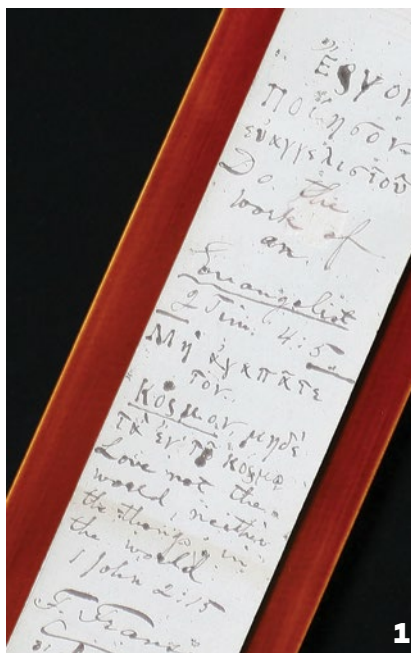 Ἔργον
Ποίησον
εὐαγγελιστοῦ
Do the
work of
an
Evangelist
2 Tim. 4:5
Μὴ ἀγαπᾶτε
τὸν
Κόσμον, μηδὲ
τὰ ἐν τῷ κόσμῳ
Love not the
world, neither
the things in
the world
1 John 2:15
F.
1